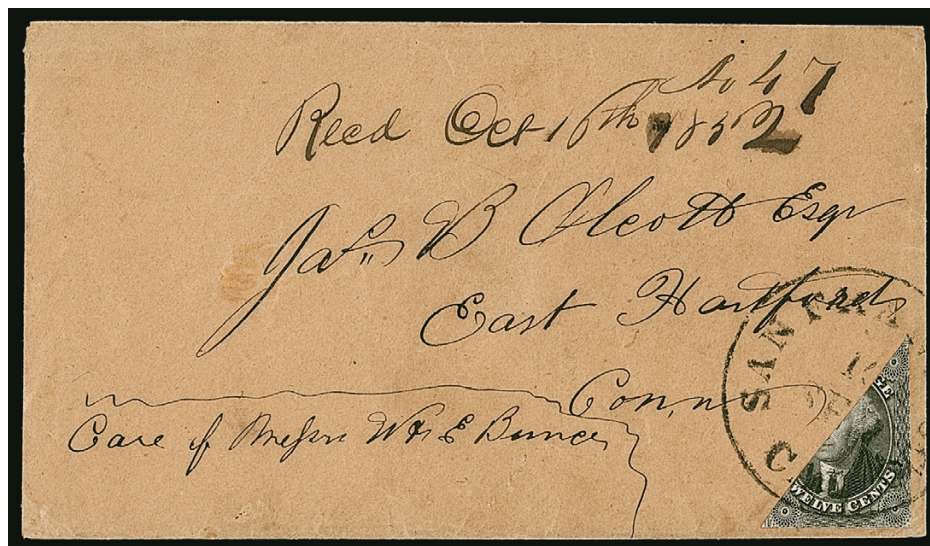 No 47
Recd Oct 16th 1852
Jas B Olcott Esqr
East Hartford
Conn
Care of Messrs Wm E Bunce
SAN FRAN
C
TWELVE CENTS